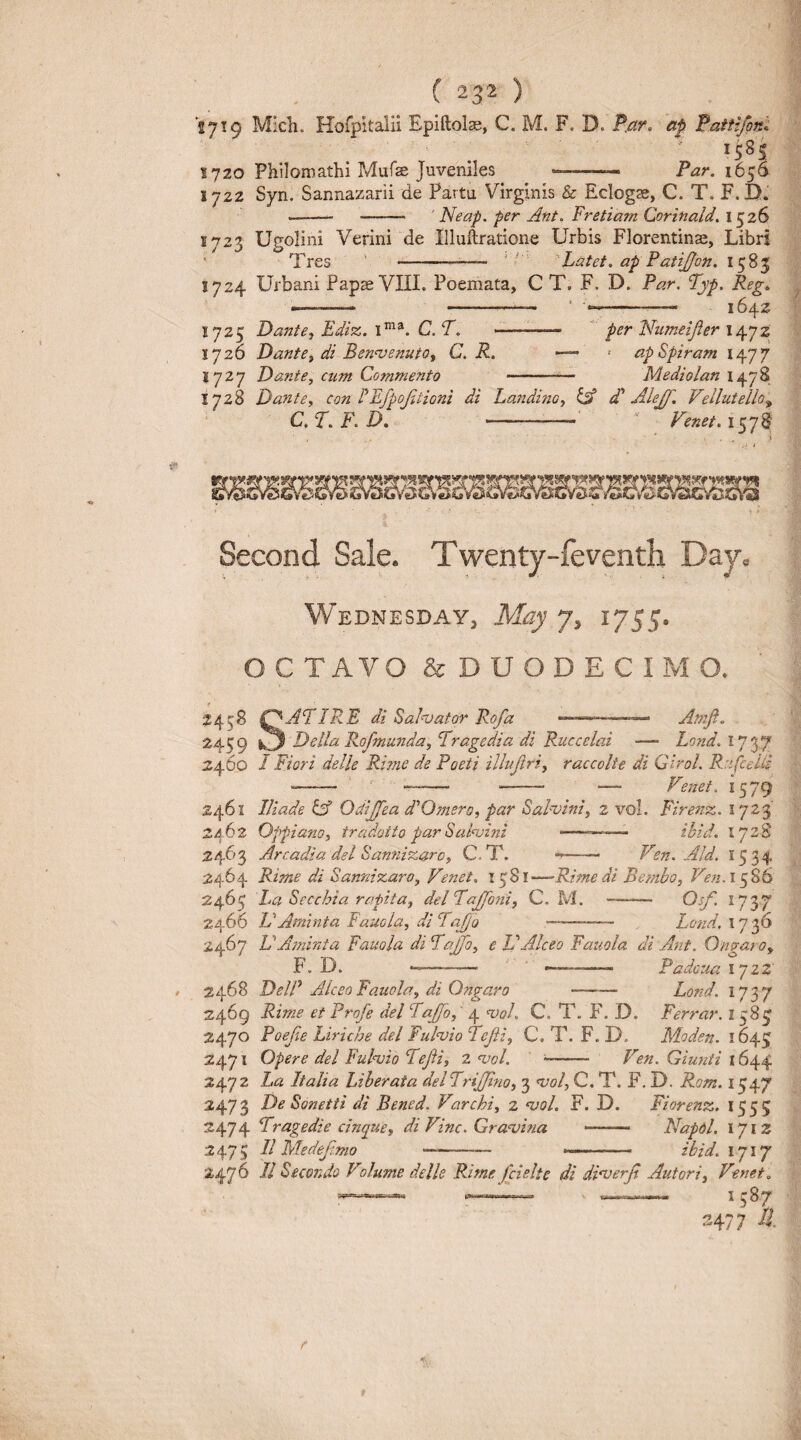 ( 232 )
1719 Mich. Hoſpitalii Epiſtolæ, C. M. F. D. Par. ap Pattiſon.
1585
1720 Philomathi Muſæ Juveniles ——— Par. 1656
1722 Syn. Sannazarii de Partu Virginis & Eclogæ, C. T. F. D.
—— —— Neap. per Ant. Fretiam Corinald. 1526
1723 Ugolini Verini de Illuſtratione Urbis Florentinæ, Libri
Tres ——— Latet. ap Patiſſon. 1583
1724 Urbani Papæ VIII. Poemata, C T. F. D. Par. Typ. Reg.
—— ——— ——— 1642
1725 Dante, Ediz. 1ma. C. T. ——— per Numeiſter 1472
1726 Dante, di Benvenuto, C. R. — ap Spiram 1477
1727 Dante, cum Commento ——— Mediolan 1478
1728 Dante, con l'Eſpoſitioni di Landino, & d' Aleſſ. Vellutello,
C. T. F. D. ——— Venet. 1578
Second Sale. Twenty-ſeventh Day.
Wednesday, May 7, 1755.
OCTAVO & DUODECIMO.
2458 SATIRE di Salvator Roſa ——— Amſt.
2459 Della Roſmunda, Tragedia di Ruccelai — Lond. 1737
2460 I Fiori delle Rime de Poeti illuſtri, raccolte di Girol. Ruſcelli
—— —— —— — Venet. 1579
2461 Iliade & Odiſſea d'Omero, par Salvini, 2 vol. Firenz. 1723
2462 Oppiano, tradotto par Salvini ——— ibid. 1728
2463 Arcadia del Sannizaro, C. T. —— Ven. Ald. 1534
2464 Rime di Sannizaro, Venet. 1581—Rime di Bembo, Ven. 1586
2465 La Secchia rapita, del Taſſoni, C. M. —— Oſſ. 1737
2466 L'Aminta Fauola, di Taſſo ——— Lond. 1736
2467 L'Aminta Fauola di Taſſo, e L'Alceo Fauola di Ant. Ongaro,
F. D. ——— ——— Padoua 1722
2468 Dell' Alceo Fauola, di Ongaro —— Lond. 1737
2469 Rime et Proſe del Taſſo, 4 vol. C. T. F. D. Ferrar. 1585
2470 Poeſie Liriche del Fulvio Teſti, C. T. F. D. Moden. 1645
2471 Opere del Fulvio Teſti, 2 vol. —— Ven. Giunti 1644
2472 La Italia Liberata del Triſſino, 3 vol, C. T. F. D. Rom. 1547
2473 De Sonetti di Bened. Varchi, 2 vol. F. D. Fiorenz. 1555
2474 Tragedie cinque, di Vinc. Gravina —— Napol. 1712
2475 Il Medeſimo ——— ——— ibid. 1717
2476 Il Secondo Volume delle Rime ſcielte di diverſi Autori, Venet.
——— ——— ——— 1587
2477 Il